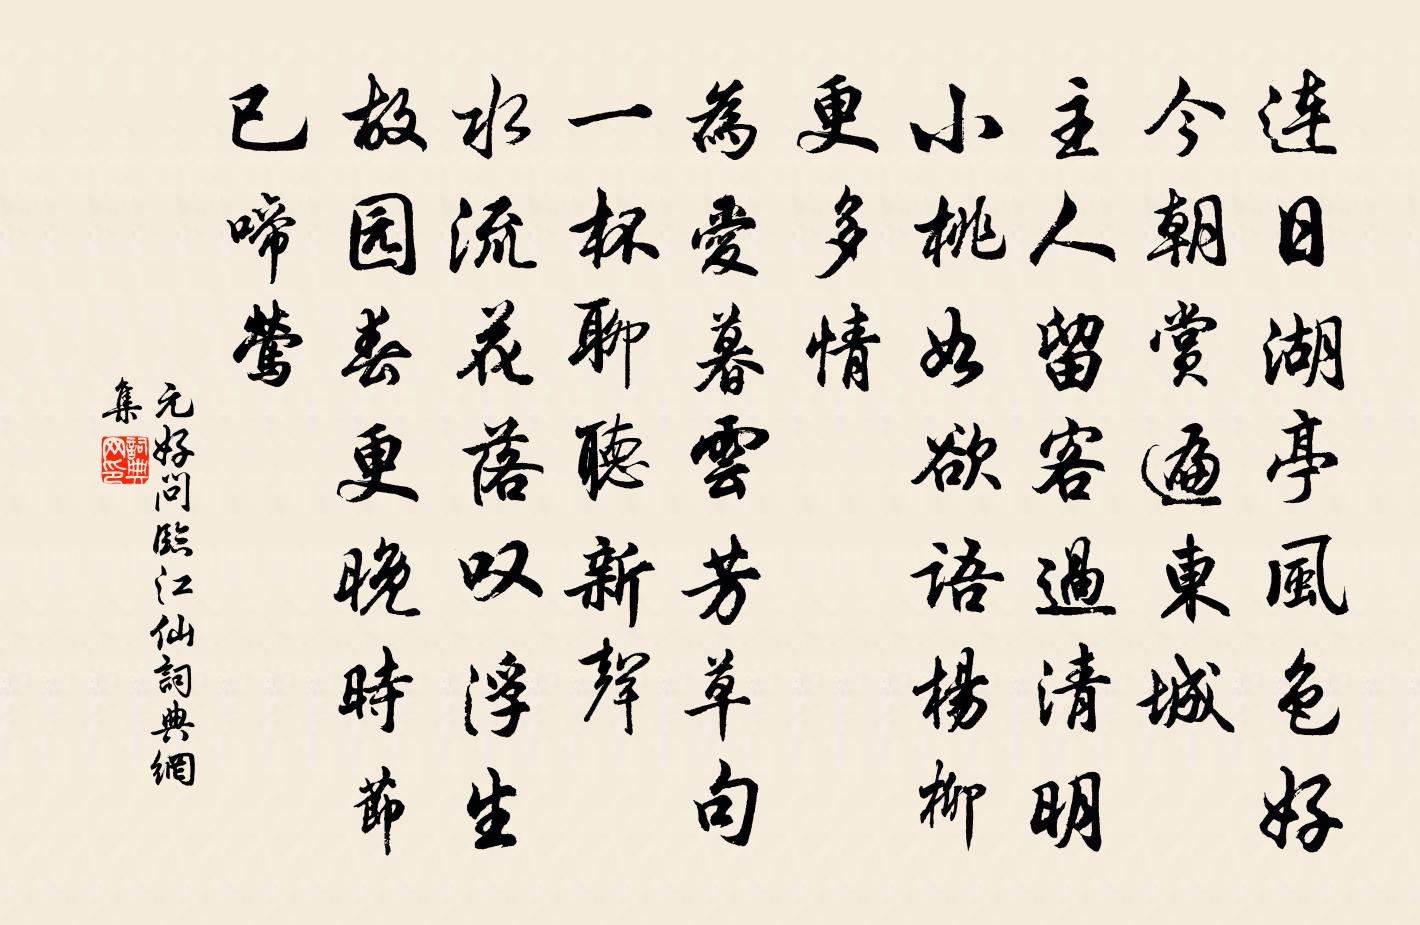 连日湖亭風色好
今朝賞遍東城
主人留客過清明
小桃如欲語楊柳
更多情
為愛暮雲芳草句
一杯聊聽新聲
水流花落叹浮生
故园春更晚時節
已啼鶯
元好問臨江仙詞典網
集
詞典
网印